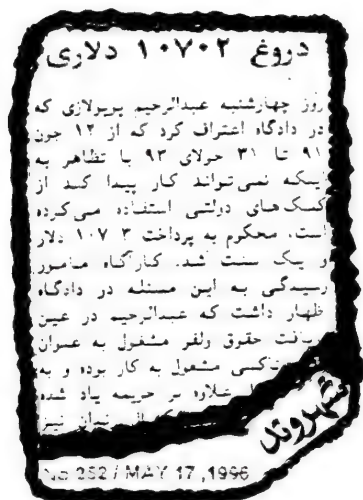 دروغ ۱۰۷۰۲ دلاری
روز چهارشنبه عبدالرحیم پریرلازی که
در دادگاه اعتراف کرد که از ۱۲ جون
۹۱ تا ۳۱ جولای ۹۳ با تظاهر به
اینکه نمی‌تواند کار پیدا کند از
کمک‌های دولتی استفاده می‌کرده
است، محکوم به پرداخت ۱۰۷۰۳ دلار
و یک سنت شد. کارآگاه مامور
رسیدگی به این مسئله در دادگاه
ظهار داشت که عبدالرحیم در عین
دریافت حقوق ولفر مشغول به عنوان
تاکسی مشغول به کار بوده و به
علاوه بر جریمه یاد شده
نیز
شهروند
No 252 / MAY 17, 1996